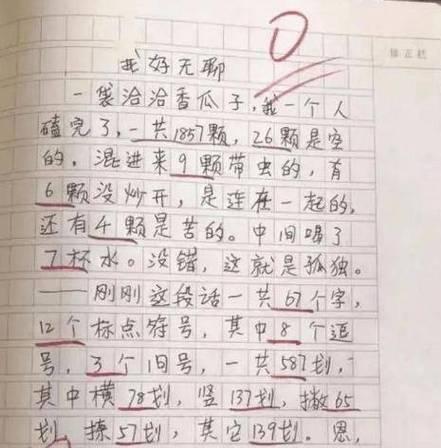 0
修正栏
我好无聊
一袋洽洽香瓜子,我一个人
嗑完了,一共1857颗,26颗是空
的,混进来9颗带虫的,有
6颗没炒开,是连在一起的,
还有4颗是苦的。中间喝了
7杯水。没错,这就是孤独。
——刚刚这段话一共67个字,
12个标点符号,其中8个逗
号,3个句号,一共587划,
其中横78划,竖137划,撇65
划,捺57划,其它139划。恩,